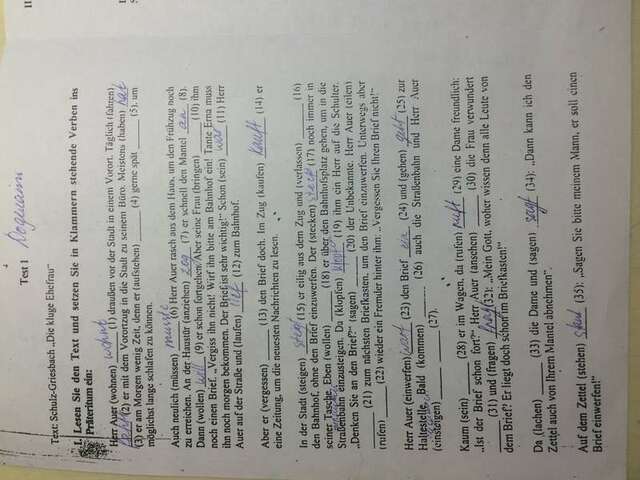 II
Test 1
Text: Schulz-Griesbach „Die kluge Ehefrau“
I. Lesen Sie den Text und setzen Sie in Klammern stehende Verben ins
Präteritum ein:
Herr Auer (wohnen) wohnt (1) draußen vor der Stadt in einem Vorort. Täglich (fahren)
(2) er mit dem Vorortzug in die Stadt zu seinem Büro. Meistens (haben) hat
(3) er am Morgen wenig Zeit, denn er (aufstehen) (4) gerne spät (5), um
möglichst lange schlafen zu können.
Auch neulich (müssen) musste (6) Herr Auer rasch aus dem Haus, um den Frühzug noch
zu erreichen. An der Haustür (anziehen) zog (7) er schnell den Mantel an (8).
Dann (wollen) will (9) er schon fortgehen. Aber seine Frau (bringen) (10) ihm
noch einen Brief. „Vergiss ihn nicht! Wirf ihn bitte am Bahnhof ein! Tante Erna muss
ihn noch morgen bekommen. Der Brief ist sehr wichtig!“ Schon (sein) war (11) Herr
Auer auf der Straße und (laufen) lief (12) zum Bahnhof.
Aber er (vergessen) (13) den Brief doch. Im Zug (kaufen) kauft (14) er
eine Zeitung, um die neuesten Nachrichten zu lesen.
In der Stadt (steigen) stieg (15) er eilig aus dem Zug und (verlassen) (16)
den Bahnhof, ohne den Brief einzuwerfen. Der (stecken) steckt (17) noch immer in
seiner Tasche. Eben (wollen) (18) er über den Bahnhofsplatz gehen, um in die
Straßenbahn einzusteigen. Da (klopfen) (19) ihm ein Herr auf die Schulter.
„Denken Sie an den Brief!“ (sagen) (20) der Unbekannte. Herr Auer (eilen)
(21) zum nächsten Briefkasten, um den Brief einzuwerfen. Unterwegs aber
(rufen) (22) wieder ein Fremder hinter ihm: „Vergessen Sie Ihren Brief nicht!“
Herr Auer (einwerfen) (23) den Brief ein (24) und (gehen) geht (25) zur
Haltestelle. Bald (kommen) (26) auch die Straßenbahn und Herr Auer
(einsteigen) (27).
Kaum (sein) (28) er im Wagen, da (rufen) ruft (29) eine Dame freundlich:
„Ist der Brief schon fort?“ Herr Auer (ansehen) (30) die Frau verwundert
(31) und (fragen) fragt (32): „Mein Gott, woher wissen denn alle Leute von
dem Brief? Er liegt doch schon im Briefkasten!“
Da (lachen) (33) die Dame und (sagen) sagt (34): „Dann kann ich den
Zettel auch von Ihrem Mantel abnehmen“.
Auf dem Zettel (stehen) (35): „Sagen Sie bitte meinem Mann, er soll einen
Brief einwerfen!“